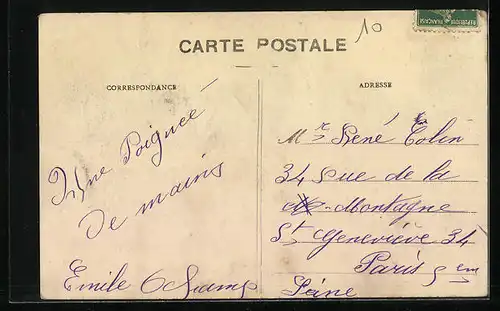 10
RÉPUBLIQUE FRANÇAISE
CARTE POSTALE
CORRESPONDANCE
ADRESSE
Une Poignée
De mains
Emile
Mr René Colin
34 Rue de la
Montagne
St Geneviève 34
Paris 5em
Seine